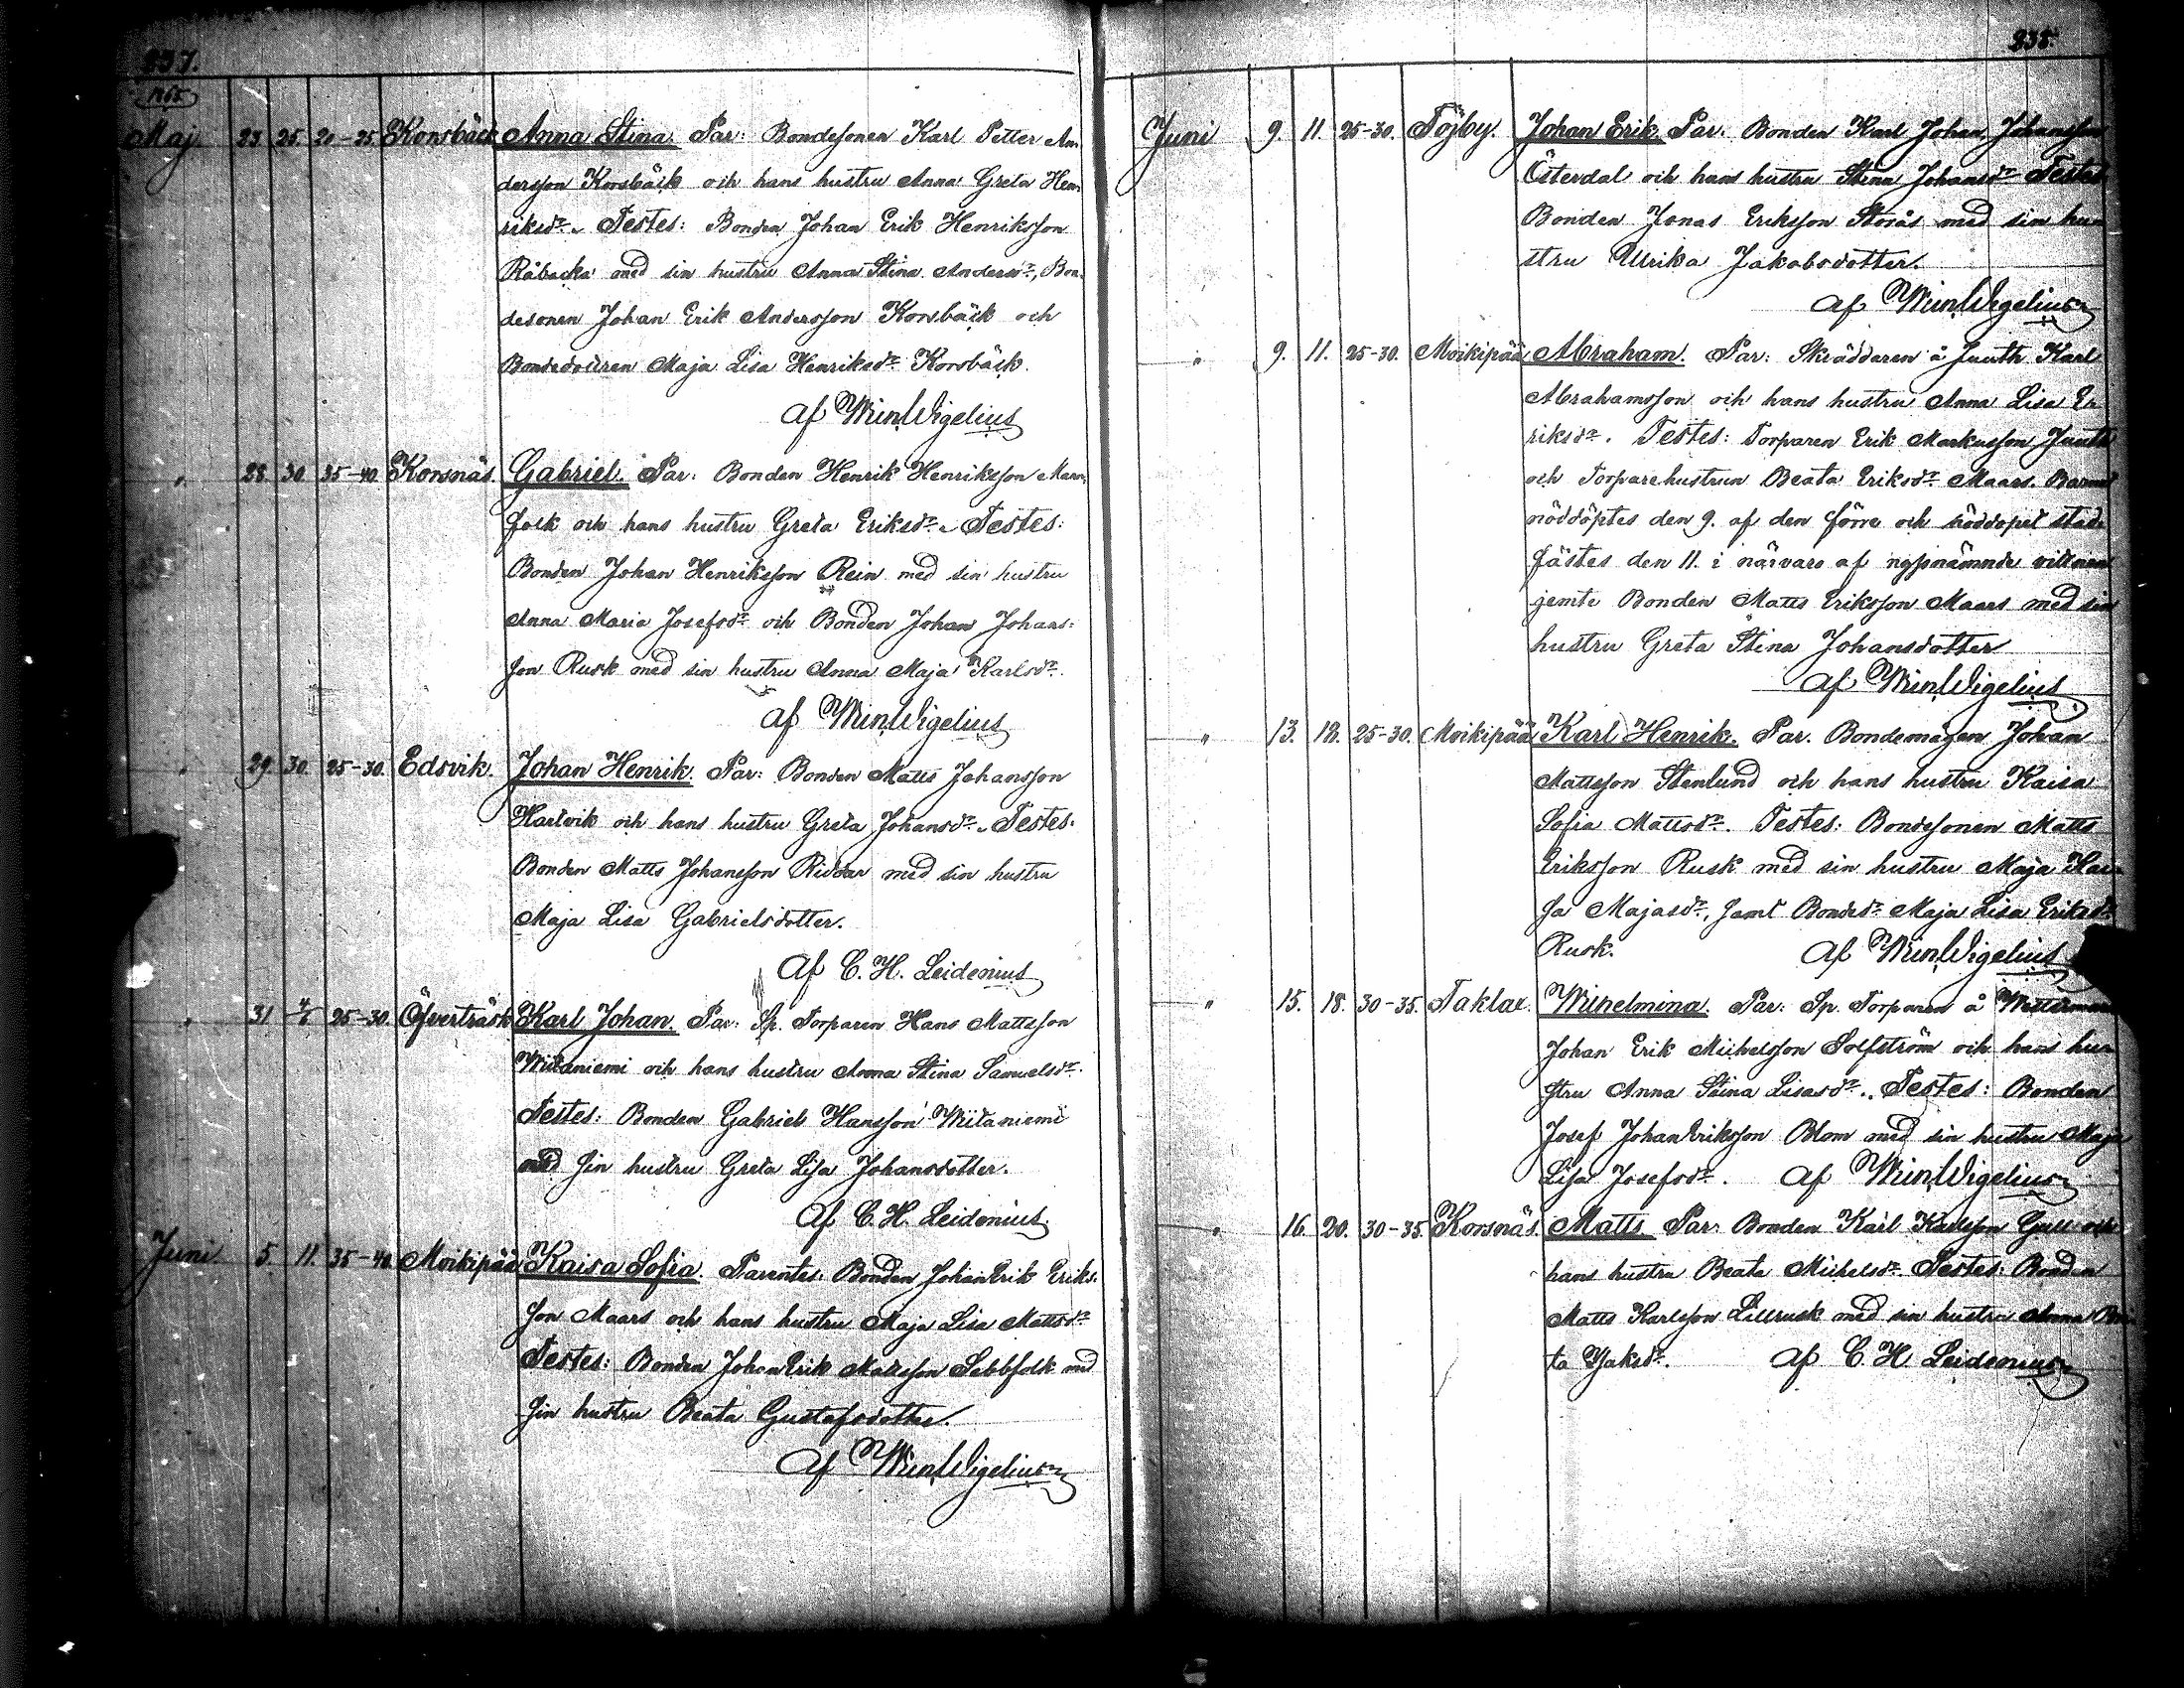 237.
1865
Maj. 23 25. 20-25 Korsbäck Anna Stina. Par: Bondesonen Karl Petter An-
dersson Korsbäck och hans hustru Anna Greta Hen-
riksdr. Testes: Bonden Johan Erik Henriksson
Råbacka med sin hustru Anna Stina Andersdr, Bon-
desonen Johan Erik Andersson Korsbäck och
Bondedottren Maja Lisa Henriksdr Korsbäck.
Af Wm Wigelius
" 28. 30. 35-40 Korsnäs. Gabriel. Par: Bonden Henrik Henriksson
folk och hans hustru Greta Eriksdr. Testes:
Bonden Johan Henriksson Rein med sin hustru
Anna Maria Josefsdr och Bonden Johan Johans-
son Rusk med sin hustru Anna Maja Karlsdr.
Af Wm Wigelius
" 29. 30. 25-30. Edsvik. Johan Henrik. Par: Bonden Matts Johansson
Hartvik och hans hustru Greta Johansdr. Testes:
Bonden Matts Johansson Riddar med sin hustru
Maja Lisa Gabrielsdotter.
Af C. H. Leidenius
" 31 4/6 25-30. Öfverträsk Karl Johan. Par: Sp. Torparen Hans Mattsson
Wiitaniemi och hans hustru Anna Stina Samuelsdr.
Testes: Bonden Gabriel Hansson Wiitaniemi
med sin hustru Greta Lisa Johansdotter.
Af C. H. Leidenius
Juni. 5. 11. 35-40. Moikipää Kaisa Sofia. Parentes: Bonden Johan Erik Eriks-
son Maars och hans hustru Maja Lisa Mattsdr
Testes: Bonden Johan Erik Mattsson Sebbfolk med
sin hustru Beata Gustafsdotter.
Af Wm Wigelius
238.
Juni 9. 11. 25-30. Töjby. Johan Erik. Par: Bonden Karl Johan Johansson
Österdal och hans hustru Stina Johansdr Testes
Bonden Jonas Eriksson Storås med sin hu-
stru Ulrika Jakobsdotter.
Af Wm Wigelius
" 9. 11. 25-30. Moikipää Abraham. Par: Skräddaren å Juuth Karl
Abrahamsson och hans hustru Anna Lisa E-
riksdr. Testes: Torparen Erik Markusson Juuth
och Torparehustrun Beata Eriksdr Maars. Barnet
nöddöptes den 9. af den förre och nöddopet stad-
fästes den 11. i närvaro af nyssnämnde vittnen
jemte Bonden Matts Eriksson Maars med sin
hustru Greta Stina Johansdotter
Af Wm Wigelius
" 13. 18. 25-30. Moikipää Karl Henrik. Par. Bondemågen Johan
Mattsson Stenlund och hans hustru Kaisa
Sofia Mattsdr. Testes: Bondesonen Matts
Eriksson Rusk med sin hustru Maja Kai-
sa Majasdr, samt Bondedr Maja Lisa Eriksdr
Rusk. Af Wm Wigelius
" 15. 18. 30-35. Taklax. Wilhelmina. Par: Sp. Torparen å
Johan Erik Michelsson Solfström och hans hu-
stru Anna Stina Lisasdr. Testes: Bonden
Josef Johan Eriksson Blom med sin hustru Maja
Lisa Josefsdr. Af Wm Wigelius
" 16. 20. 30-35. Korsnäs. Matts. Par: Bonden Karl Karlsson Gull och
hans hustru Beata Michelsdr. Testes: Bonden
Matts Karlsson Lillrusk med sin hustru Anna Bri-
ta Isaksdr. Af C. H. Leidenius